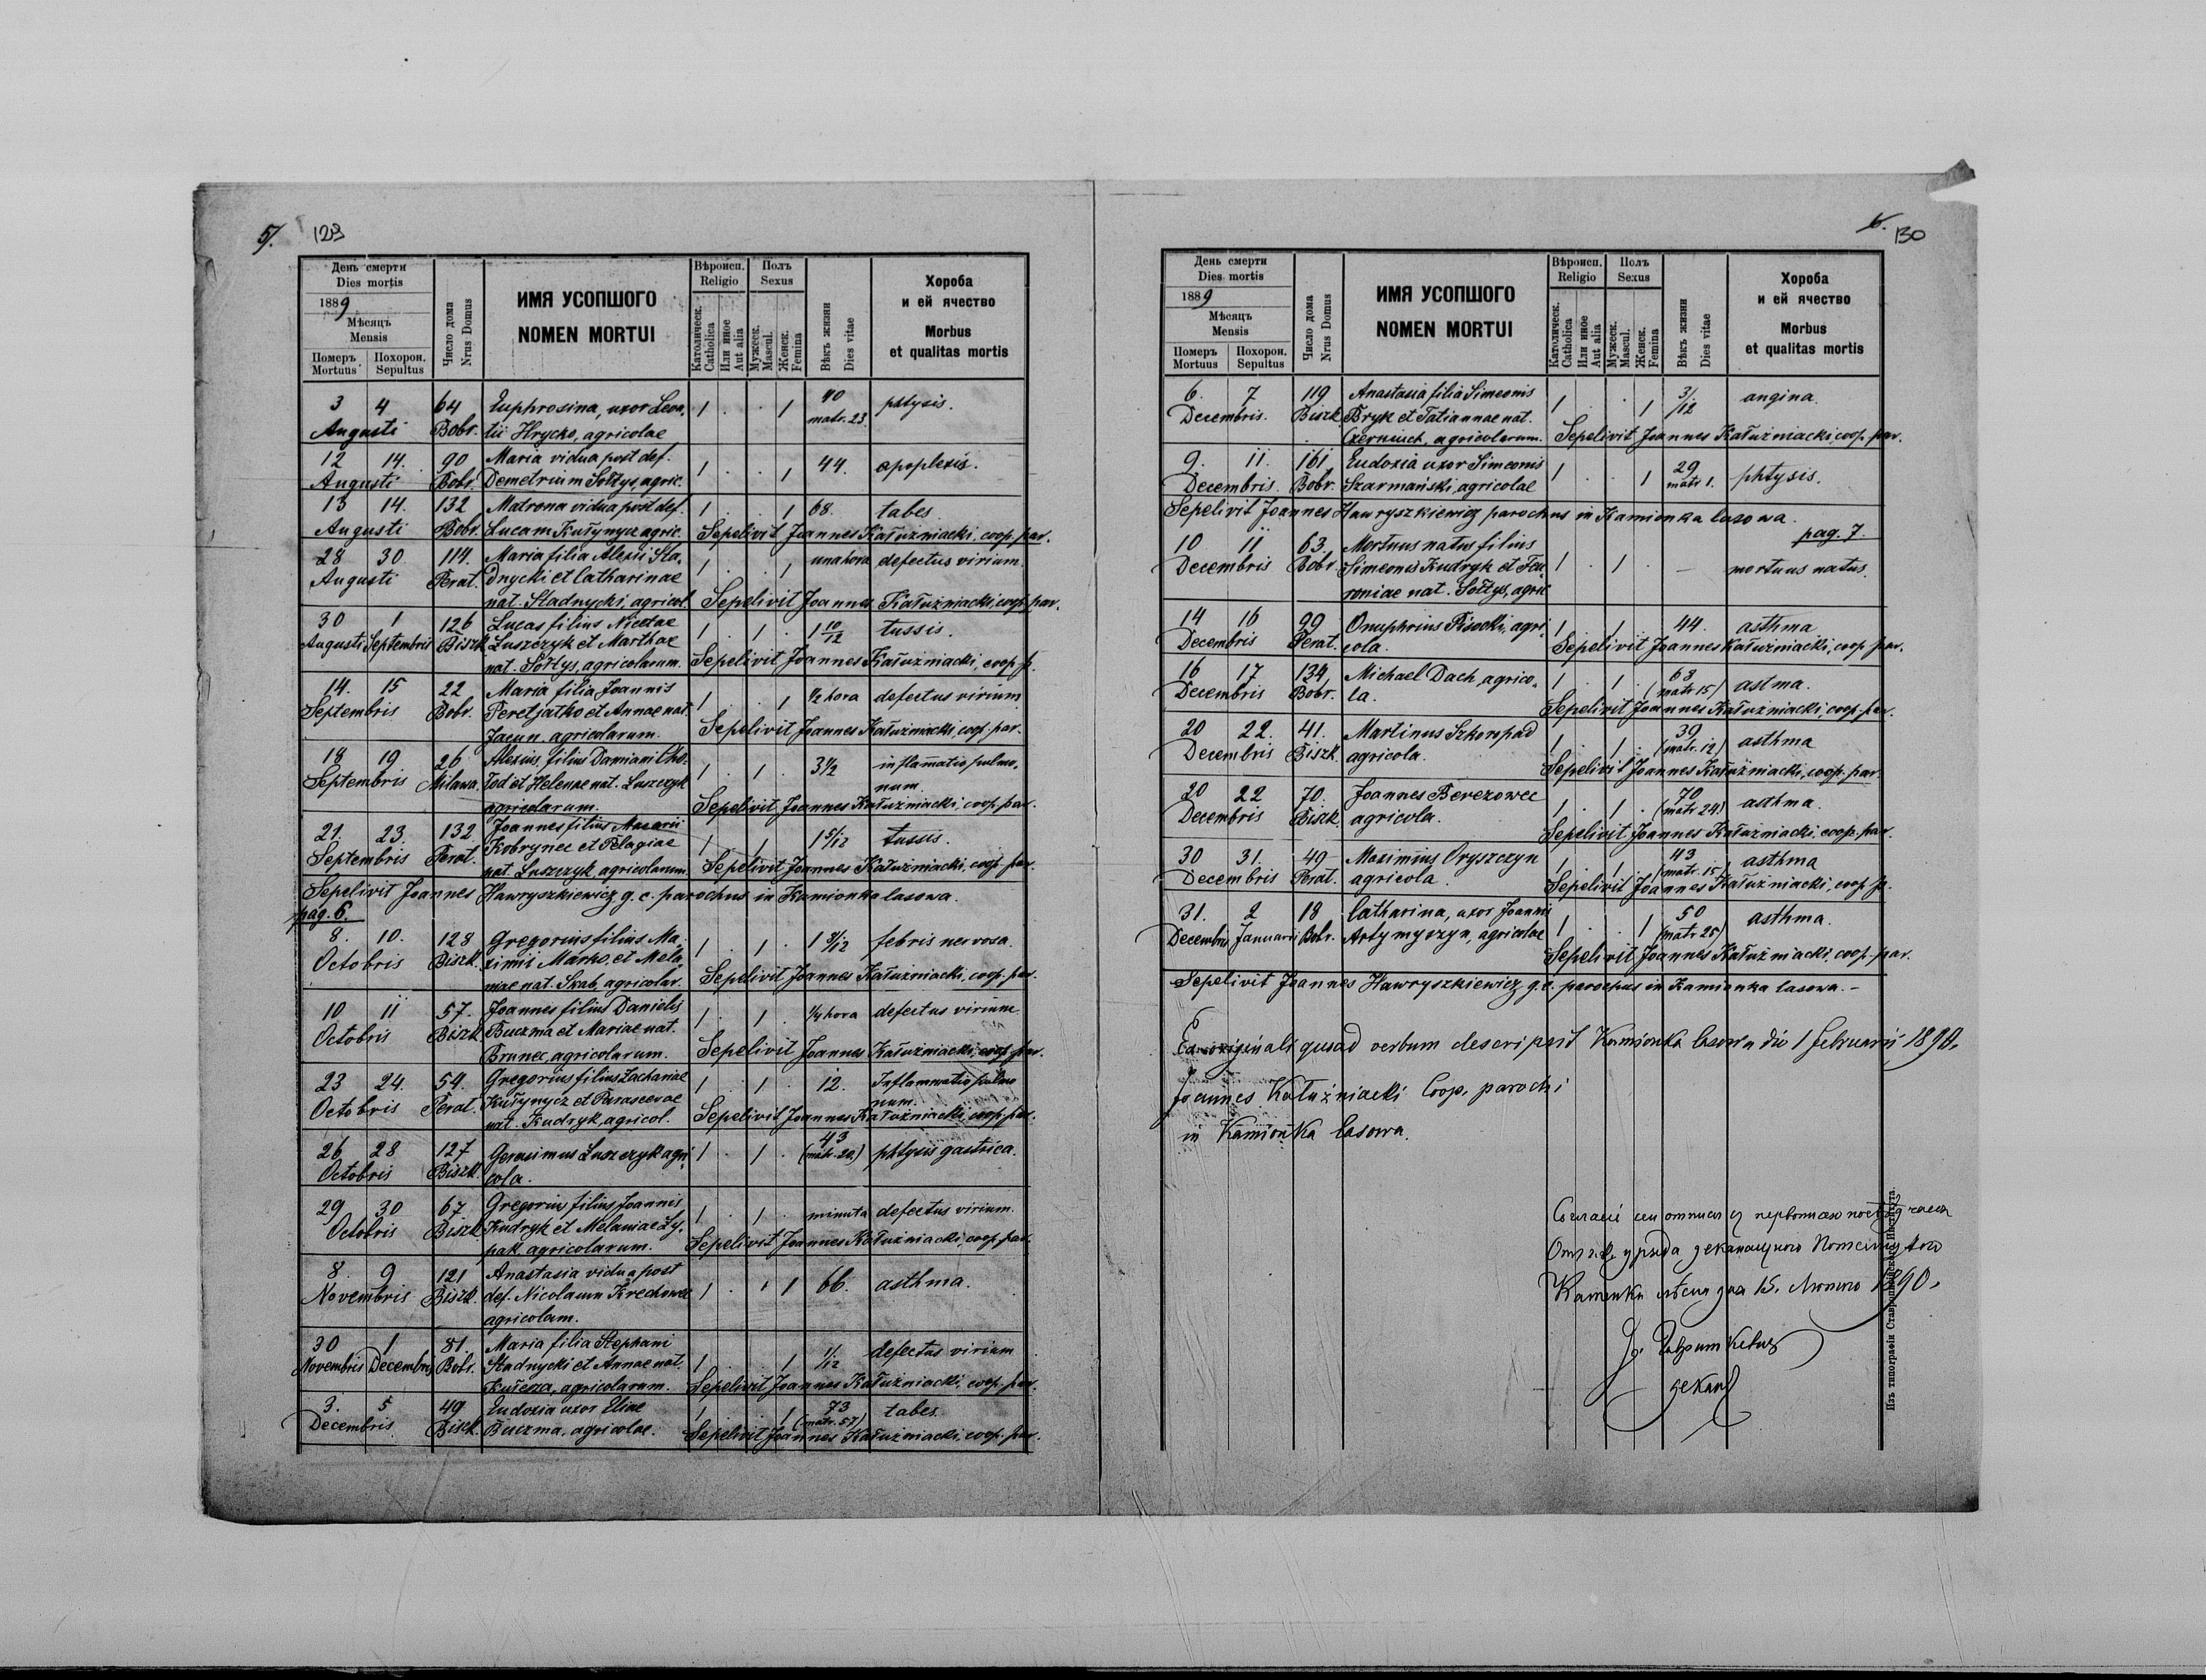 5/. 129
День смерти
Dies mortis
1889
Мѣсяцъ
Mensis
Померъ Похорон.
Mortuus Sepultus
Число дома
Nrus Domus
ИМЯ УСОПШОГО
NOMEN MORTUI
Вѣроисп.
Religio
Католическ.
Catholica
Или иное
Aut alia
Полъ
Sexus
Мужеск.
Mascul.
Женск.
Femina
Вѣкъ жизни
Dies vitae
Хороба
и ей ячество
Morbus
et qualitas mortis
3 4 64 Euphrosina, uxor Leon- 1 . . 1 40 phtysis.
Augusti Bobr. tii Hrycko, agricolae matr. 23
12 14. 90 Maria vidua post def. 1 . . 1 44. apoplexis.
Augusti Bobr. Demetrium Sołtys, agric.
13 14. 132 Matrona vidua post def. 1 . . 1 68. tabes
Augusti Bobr. Lucam Kułynycz agric. Sepelivit Joannes Kałużniacki, coop. par.
28 30 114. Maria filia Alexii Sta- 1 . . 1 una hora defectus virium.
Augusti Perat. dnycki et Catharinae
nat. Stadnycki, agricol. Sepelivit Joannes Kałużniacki, coop. par.
30 1 126 Lucas filius Nicetae 1 . 1 . 1 10/12 tussis.
Augusti Septembris Biszk. Luszczyk et Marthae
nat. Sołtys, agricolarum. Sepelivit Joannes Kałużniacki, coop. p.
14. 15 22 Maria filia Joannis 1 . . 1 1/2 hora defectus virium
Septembris Bobr. Peretjatko et Annae nat.
Jacun. agricolarum. Sepelivit Joannes Kałużniacki, coop. par.
18 19. 26 Alexius filius Damiani Cho- 1 . 1 . 3 1/2 inflamatio pulmo-
Septembris Milawa. et Helenae nat. Luszczyk num.
agricolarum. Sepelivit Joannes Kałużniacki, coop. par.
21. 23. 132 Joannes filius Macarii 1 . 1 . 1 5/12 tussis.
Septembris Perat. Kobrynec et Pelagiae
nat. Luszczyk, agricolarum. Sepelivit Joannes Kałużniacki, coop. par.
Sepelivit Joannes Hawryszkiewicz, g. c. parochus in Kamionka lasowa.
pag. 6.
8. 10. 128 Gregorius filius Ma- 1 . 1 . 1 9/12 febris nervosa.
Octobris Biszk. ximii Marko, et Mela-
niae nat. Skab, agricolar. Sepelivit Joannes Kałużniacki, coop. par.
10 11 57. Joannes filius Danielis 1 . 1 . 1/4 hora defectus virium
Octobris Biszk. Buczma et Mariae nat.
Brunec, agricolarum. Sepelivit Joannes Kałużniacki, coop. par.
23 24. 54. Gregorius filius Zachariae 1 . 1 . 12. Inflammatio pulmo
Octobris Perat. Kułynycz et Parascevae num.
nat. Kudryk, agricol. Sepelivit Joannes Kałużniacki, coop. par.
26 28 127 Gerasimus Luszczyk agri- 1 . 1 . 43 phtysis gastrica.
Octobris Biszk. cola. (matr. 20.)
29 30 67 Gregorius filius Joannis 1 . 1 . minuta defectus virium.
Octobris Biszk. Kudryk et Melaniae Ly-
pak agricolarum. Sepelivit Joannes Kałużniacki, coop. par.
8. 9 121 Anastasia vidua post 1 . . 1 66. asthma.
Novembris Biszk. def. Nicolaum Krechowec
agricolam.
30 1 81 Maria filia Stephani 1 . . 1 1/12 defectus virium
Novembris Decembris Bobr. Stadnycki et Annae nat.
agricolarum. Sepelivit Joannes Kałużniacki, coop. par.
3. 5 49 Eudoxia uxor Eliae 1 . . 1 73 tabes.
Decembris Biszk. Buczma, agricolae. (matr. 57) Sepelivit Joannes Kałużniacki, coop. par.
6. 130
День смерти
Dies mortis
1889
Мѣсяцъ
Mensis
Померъ Похорон.
Mortuus Sepultus
Число дома
Nrus Domus
ИМЯ УСОПШОГО
NOMEN MORTUI
Вѣроисп.
Religio
Католическ.
Catholica
Или иное
Aut alia
Полъ
Sexus
Мужеск.
Mascul.
Женск.
Femina
Вѣкъ жизни
Dies vitae
Хороба
и ей ячество
Morbus
et qualitas mortis
6. 7 119 Anastasia filia Simeonis 1 . . 1 3/12 angina.
Decembris. Biszk. Bryk et Tatiannae nat.
agricolarum. Sepelivit Joannes Kałużniacki, coop. par.
9. 11. 161 Eudoxia uxor Simeonis 1 . . 1 29 phtysis.
Decembris. Bobr. Szarmański, agricolae matr 1.
Sepelivit Joannes Hawryszkiewicz parochus in Kamionka lasowa.
pag. 7.
10 11 63. Mortuus natus filius 1 . 1 . — mortuus natus.
Decembris Bobr. Simeonis Kudryk et Feu-
roniae nat. Sołtys, agric
14 16 99 Onuphrius Pisocki, agri- 1 . 1 . 44. asthma
Decembris Perat. cola. Sepelivit Joannes Kałużniacki, coop. par.
16 17 134 Michael Dach, agrico- 1 . 1 . 63 astma.
Decembris Bobr. la. (matr 15)
Sepelivit Joannes Kałużniacki, coop. par.
20 22. 41. Martinus Szkoropad 1 . 1 . 39 asthma
Decembris Biszk. agricola. (matr. 12)
Sepelivit Joannes Kałużniacki, coop. par.
20 22 70. Joannes Berezowec 1 . 1 . 70 asthma.
Decembris Biszk. agricola. (matr 24)
Sepelivit Joannes Kałużniacki, coop. par.
30 31. 49 Maximius Oryszczyn 1 . 1 . 43 asthma
Decembris Perat. agricola. (matr. 15)
Sepelivit Joannes Kałużniacki, coop. p.
31. 2 18 Catharina, uxor Joannis 1 . . 1 50 asthma.
Decembris Januarii Bobr. Artymyszyn, agricolae (matr 25)
Sepelivit Joannes Kałużniacki, coop. par.
Sepelivit Joannes Hawryszkiewicz, g. c. parochus in Kamionka lasowa. —
Ex originali quoad verbum descripsit Kamionka lasowa die 1 februarii 1890.
Joannes Kałużniacki Coop. parochi
in Kamionka lasowa.
15. 1890.
декан
Изъ типографіи Ставропигійского Института.